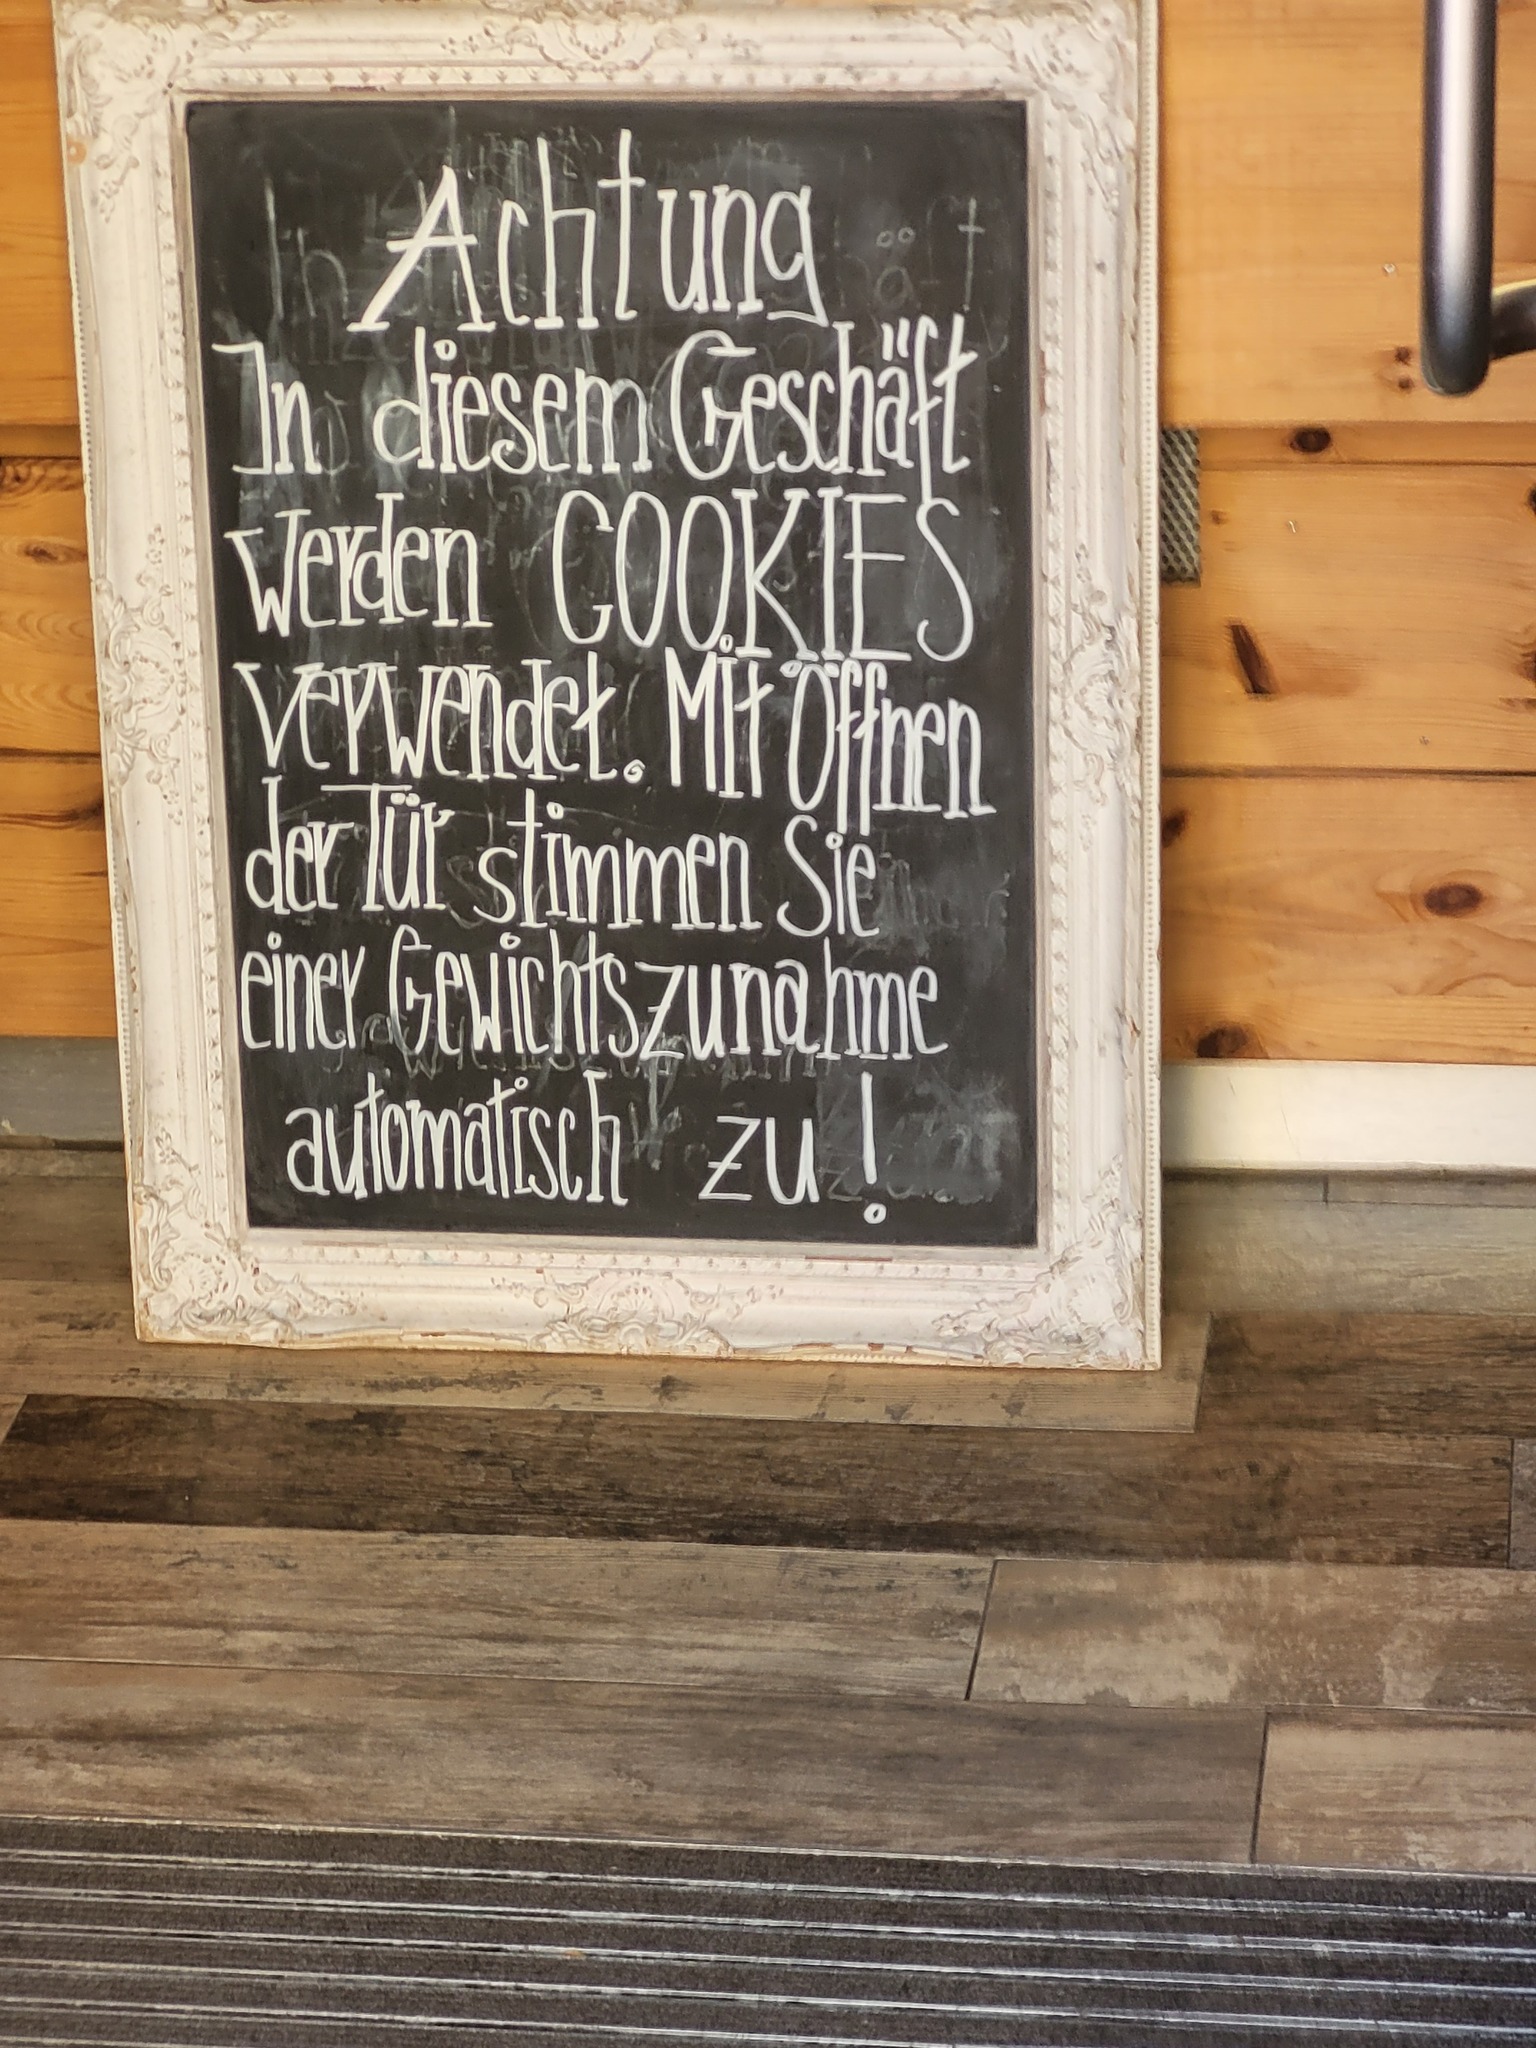 Achtung
In diesem Geschäft
werden COOKIES
verwendet. Mit Öffnen
der Tür stimmen Sie
einer Gewichtszunahme
automatisch zu!